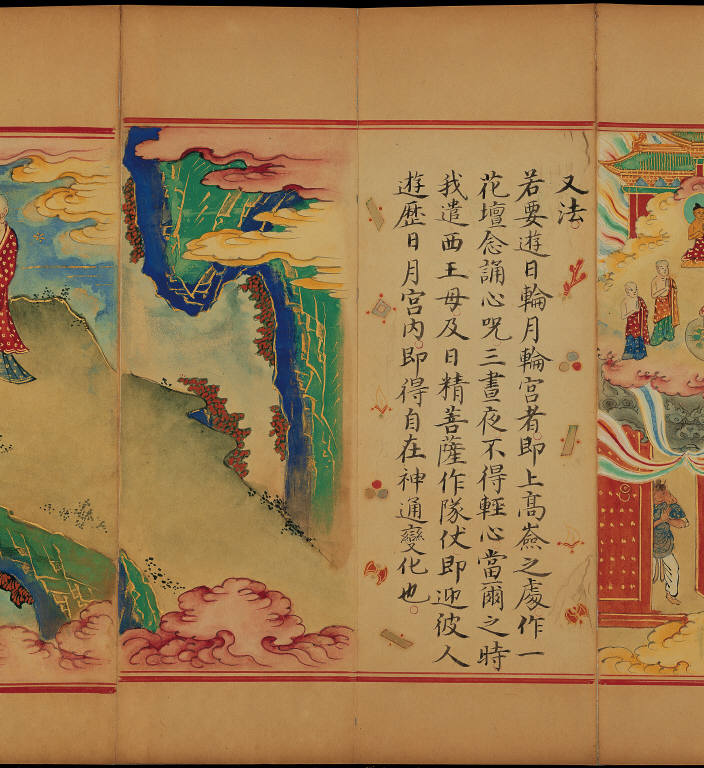 又法
若要遊日輪月輪宮者即上高嵓之處作一
花壇念誦心呪三晝夜不得輕心當爾之時
我遣西王母及日精菩薩作隊仗即迎彼人
遊歷日月宮內即得自在神通變化也